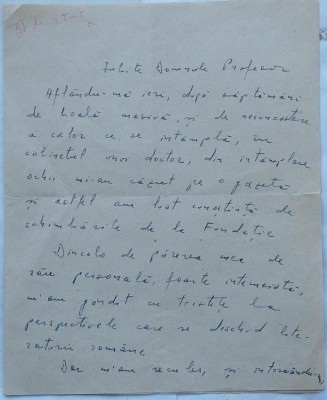 Iubite Domnule Profesor
Aflându-mă ieri, după săptămâni
de boală masivă, și de necunoaștere
a celor ce se întâmplă, în
cabinetul unui doctor, din întâmplare
ochii mi-au căzut pe o gazetă
și astfel am luat cunoștință de
schimbările de la Fundație
Dincolo de părerea mea de
rău personală, foarte interesată,
m'am gândit cu tristețe la
perspectivele care se deschid lite-
raturii române
Dar m'am recules, și întorcându-